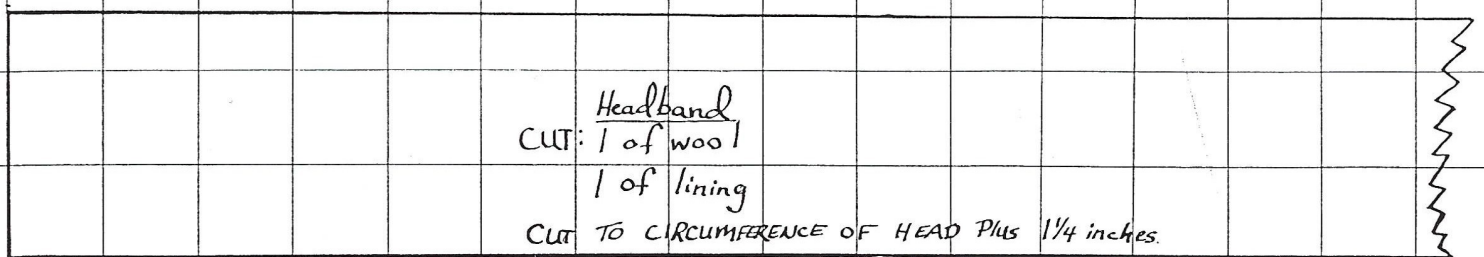 Headband
CUT: 1 of wool
1 of lining
CUT TO CIRCUMFERENCE OF HEAD Plus 1 1/4 inches.